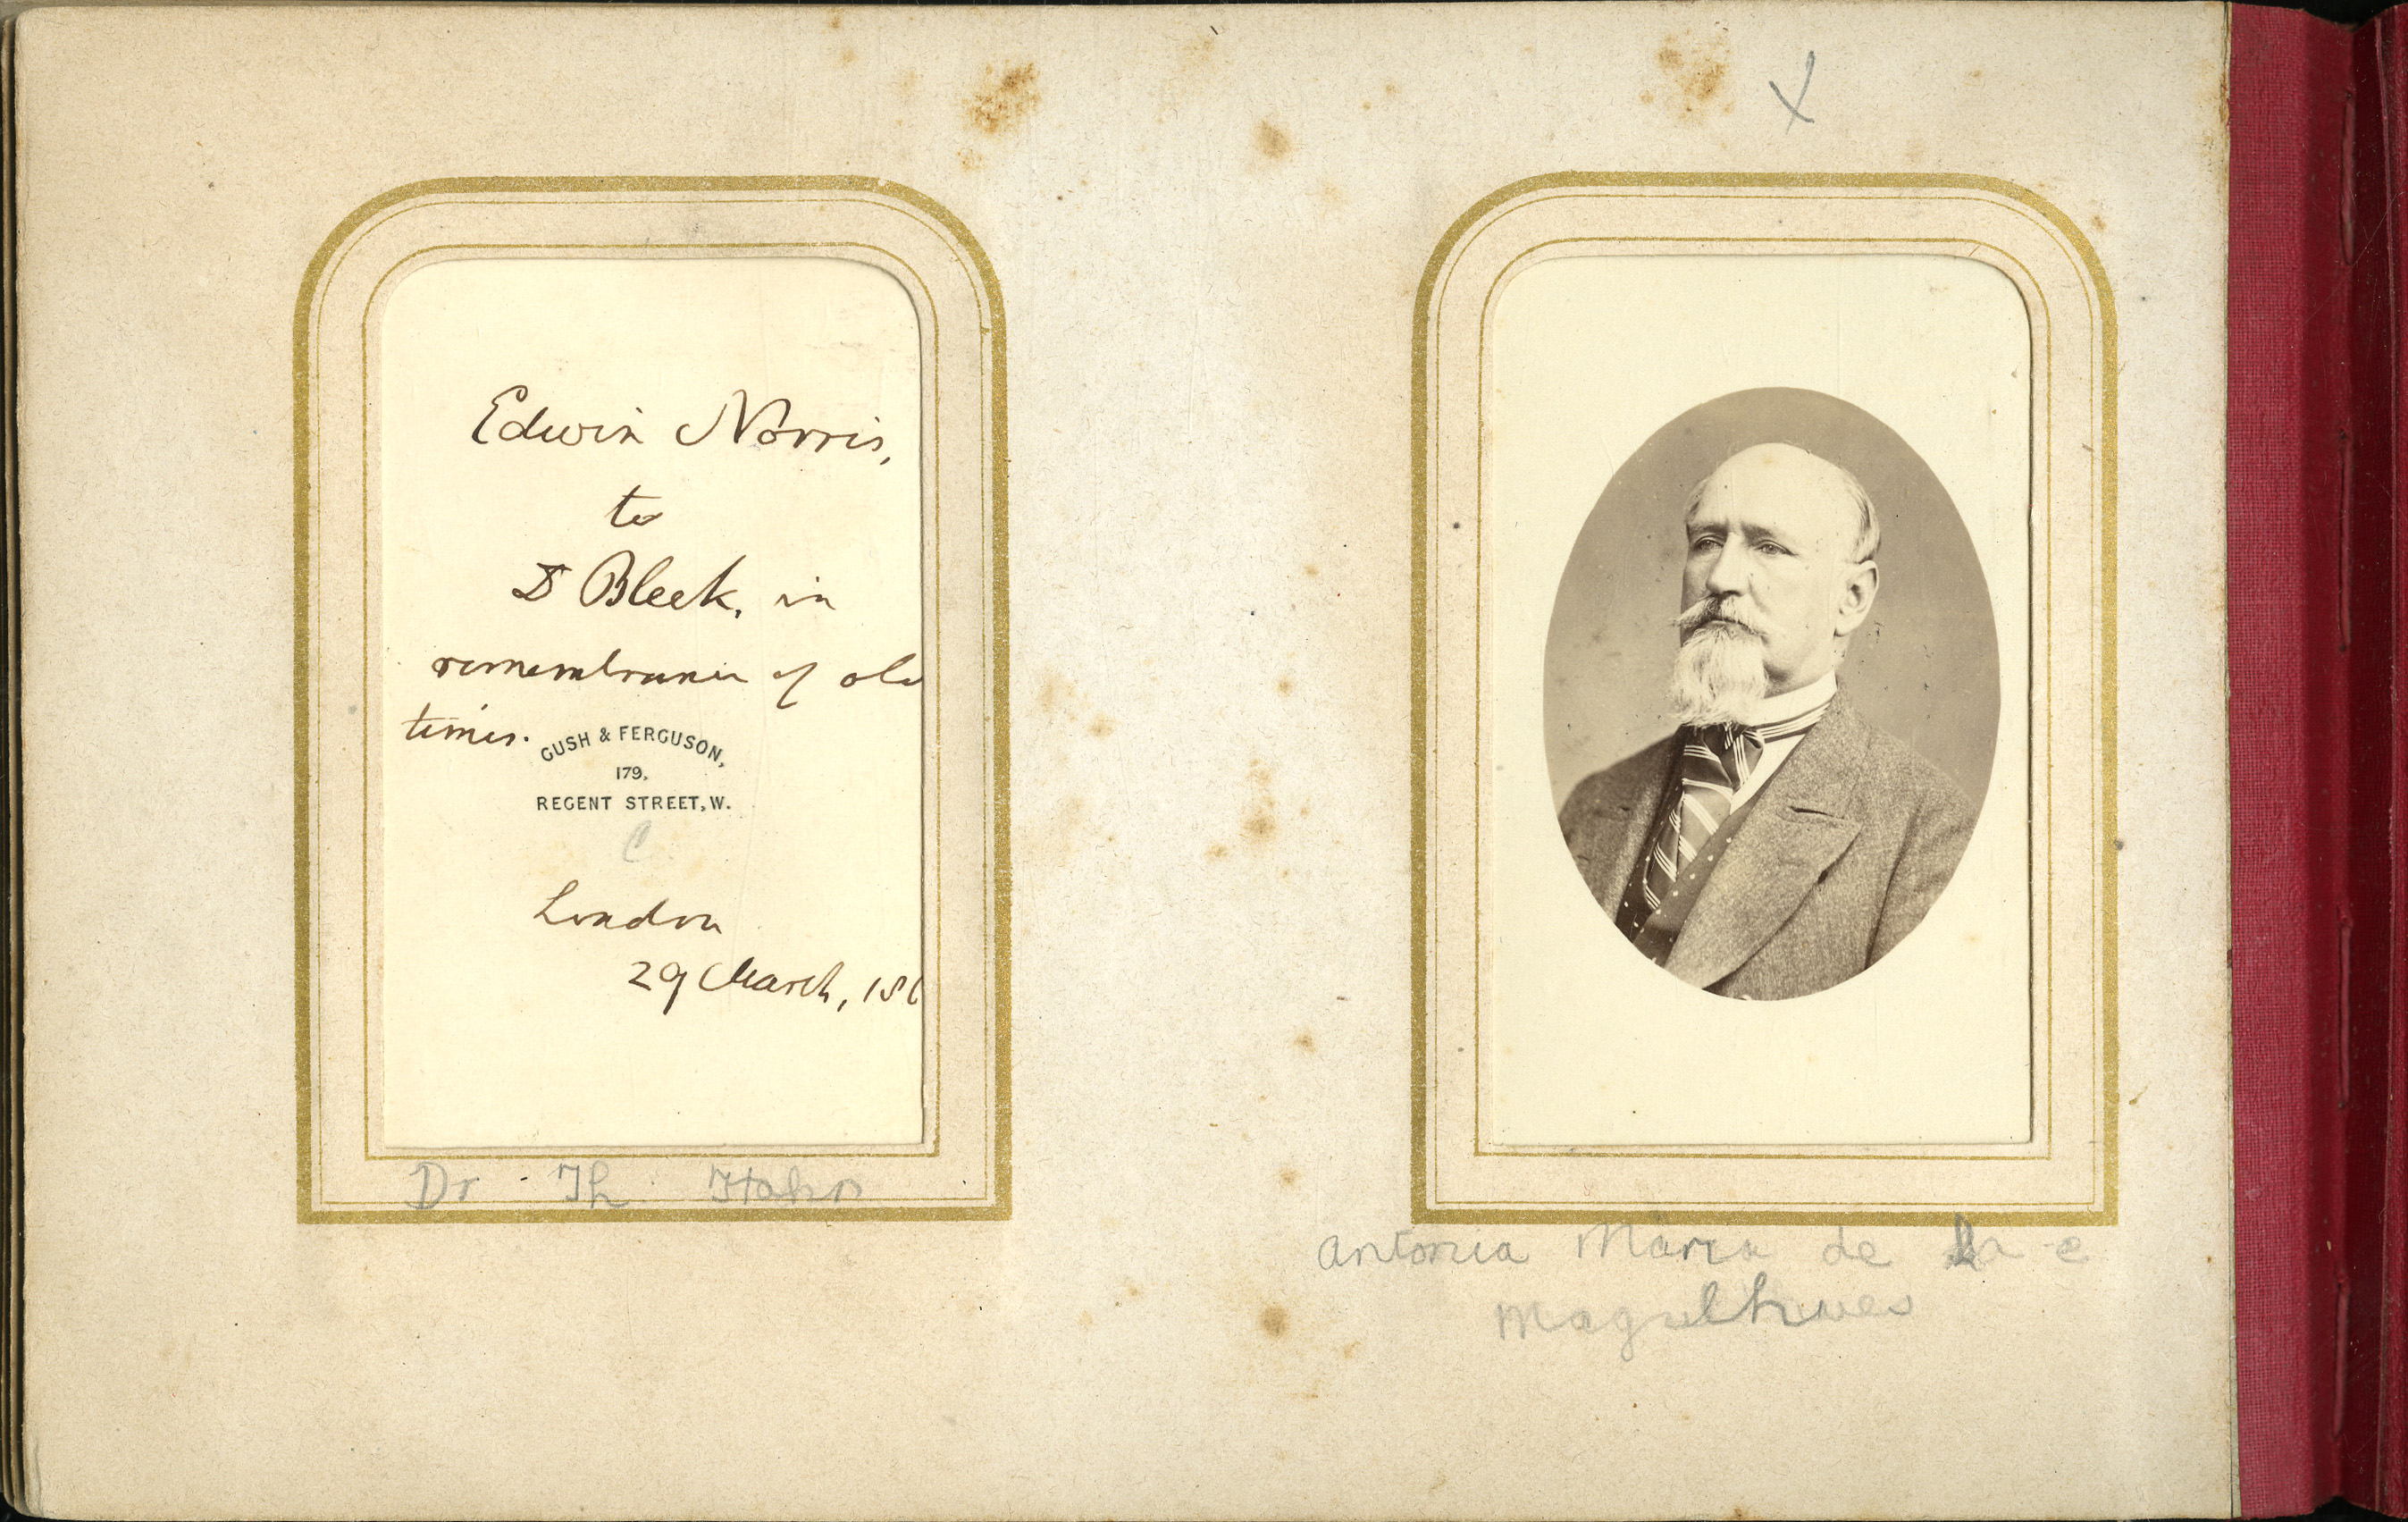 Edwin Norris,
to
Dr Bleek, in
remembrance of old
times.
GUSH & FERGUSON,
179,
REGENT STREET, W.
C
London
29 March, 186
Dr Th Hahn
X
Antonia Maria de